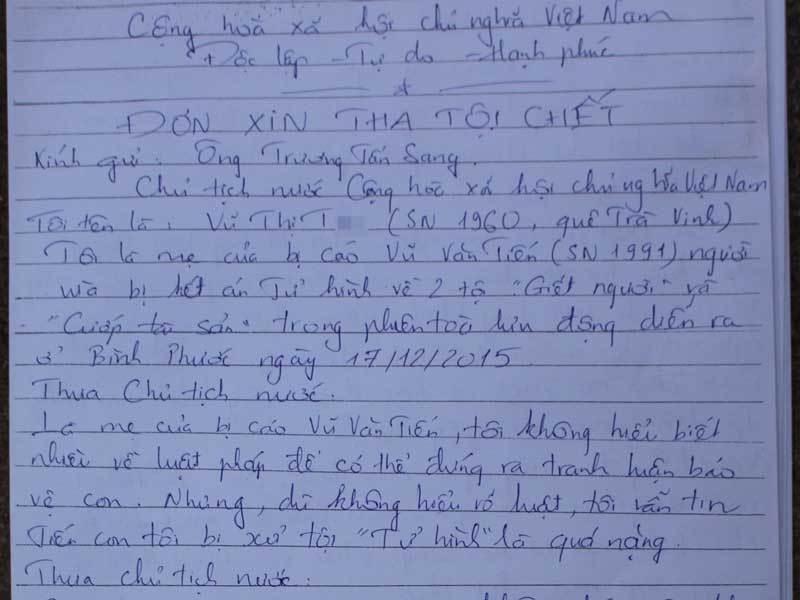 Cộng hoà xã hội chủ nghĩa Việt Nam
Độc lập - Tự do - Hạnh phúc
ĐƠN XIN THA TỘI CHẾT
Kính gửi: Ông Trương Tấn Sang.
Chủ tịch nước Cộng hoà xã hội chủ nghĩa Việt Nam
Tôi tên là: Vũ Thị T (SN 1960, quê Trà Vinh)
Tôi là mẹ của bị cáo Vũ Văn Tiến (SN 1991) người
vừa bị kết án Tử hình về 2 tộ "Giết người" và
"Cướp tài sản" trong phiên toà lưu động diễn ra
ở Bình Phước ngày 17/12/2015
Thưa Chủ tịch nước.
Là mẹ của bị cáo Vũ Văn Tiến, tôi không hiểu biết
nhiều về luật pháp để có thể đứng ra tranh luận bảo
vệ con. Nhưng, dù không hiểu rõ luật, tôi vẫn tin
Tiến con tôi bị xử tội "Tử hình" là quá nặng.
Thưa chủ tịch nước: